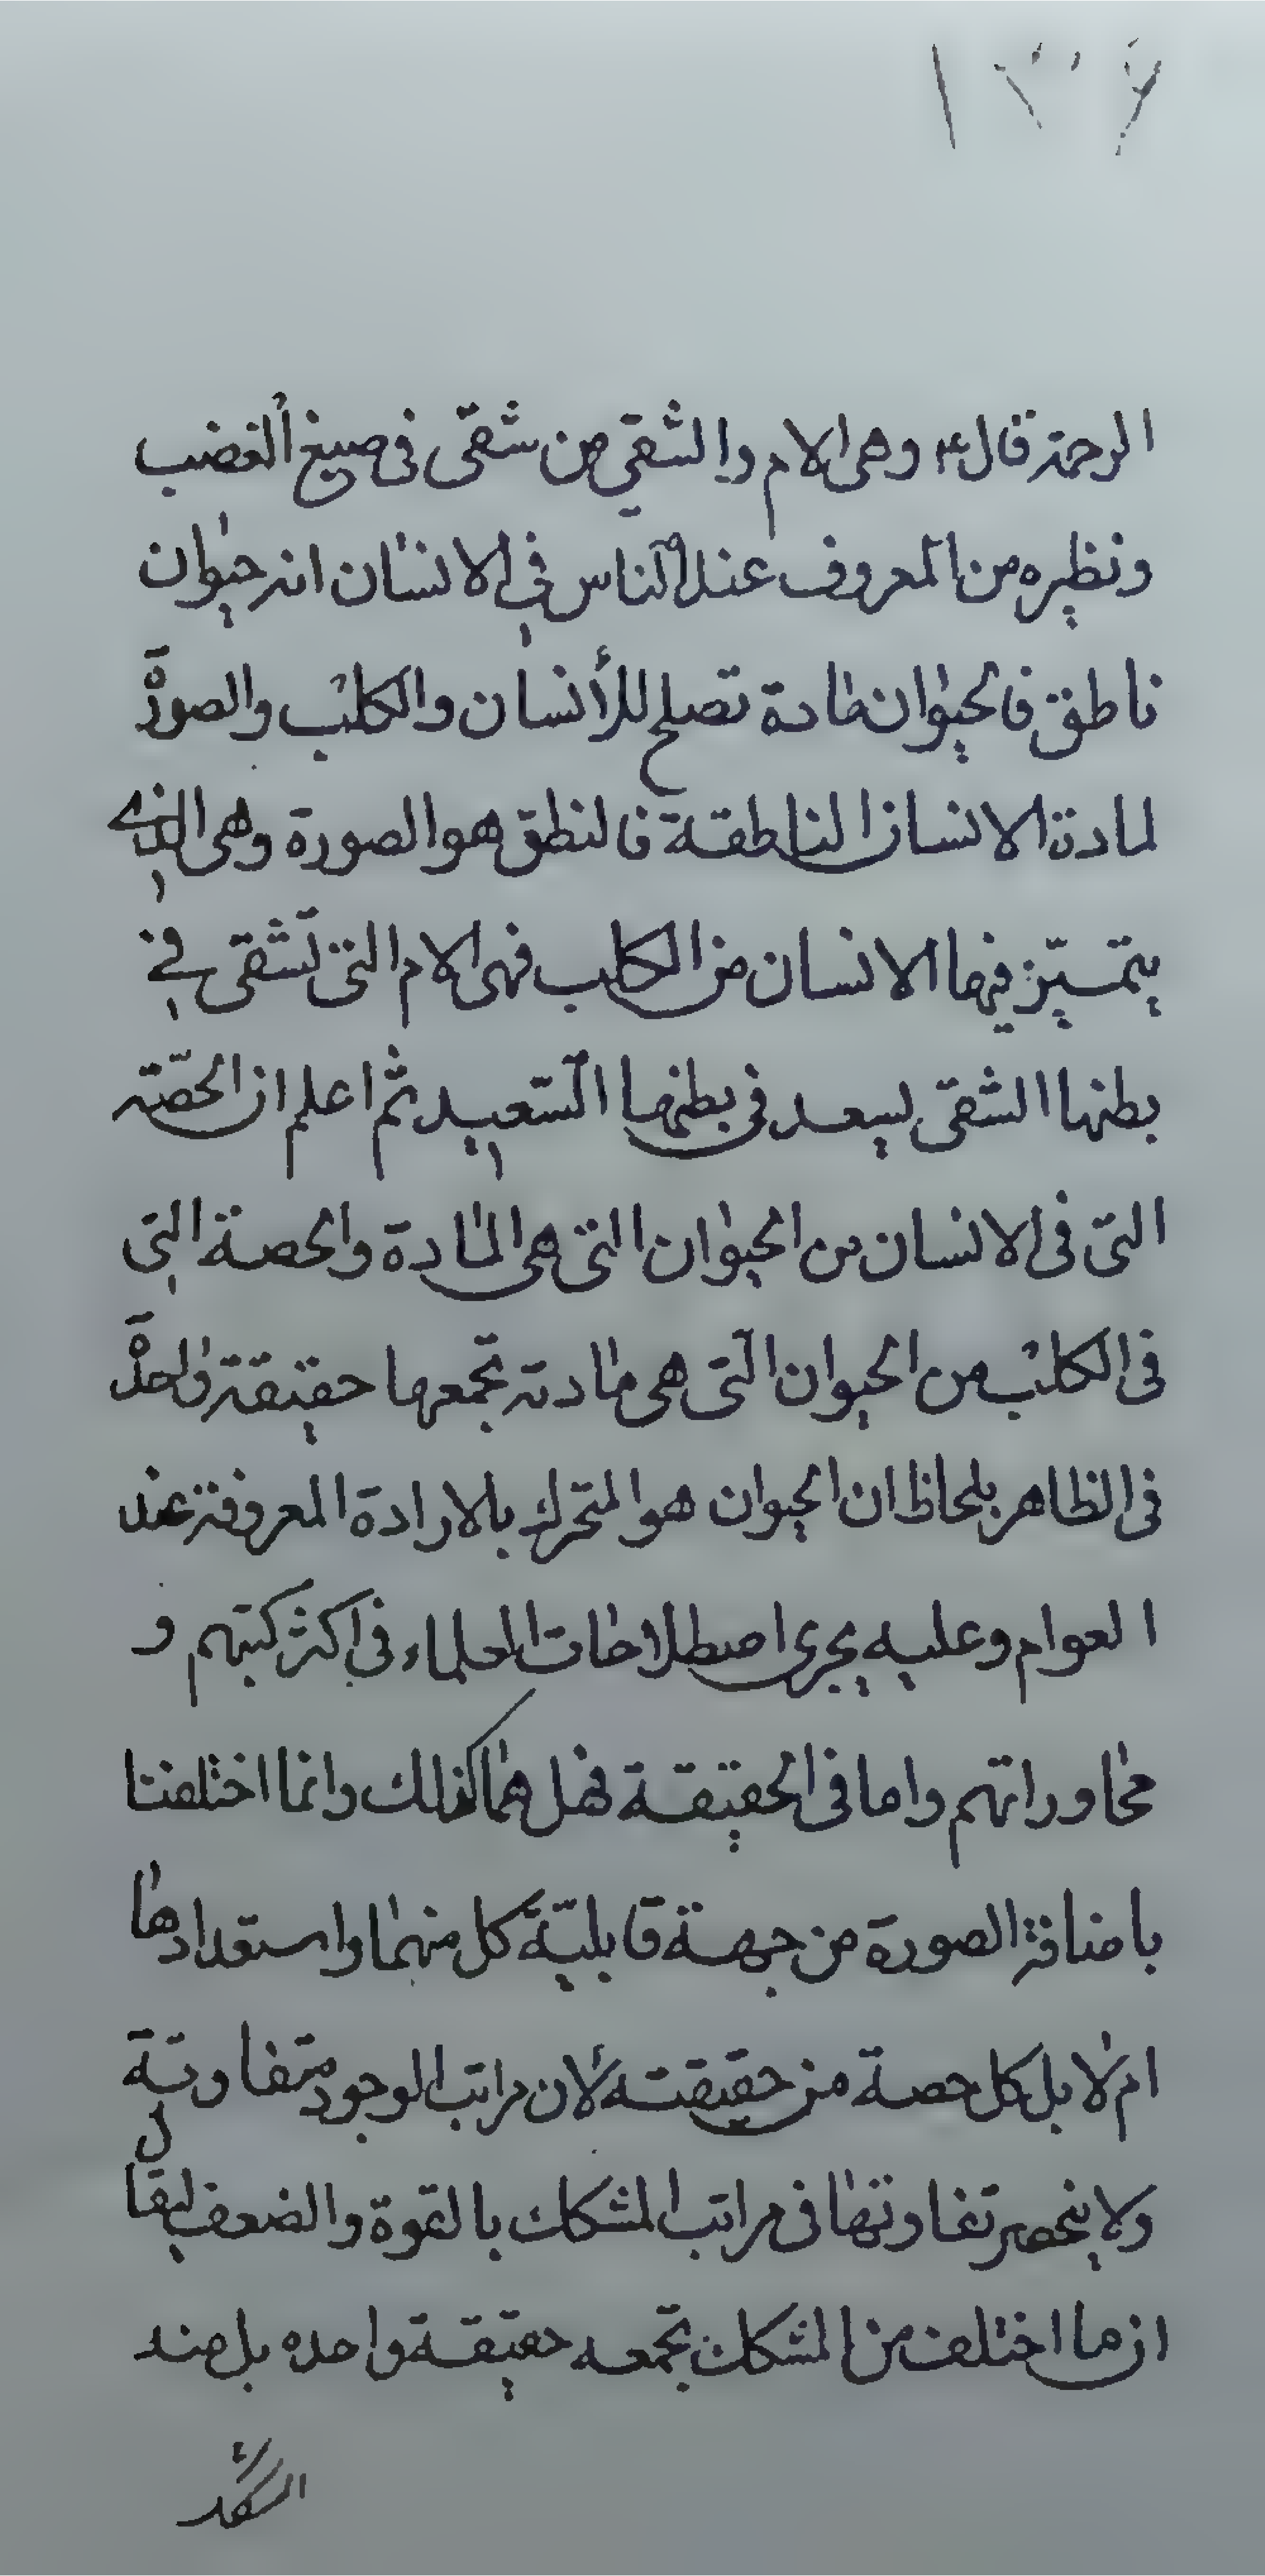 الرحمة قال ع وهى الام والشقي من شقى فى صبغ الغضب
ونظيره من المعروف عند الناس في الانسان انه حيوان
ناطق فالحيوان مادة تصلح للأنسان والكلب والصورة
لمادة الانسان الناطقة فالنطق هو الصورة وهى الذي
يتميّز فيها الانسان من الكلب فهى الام التى تشقى في
بطنها الشقى يسعد فى بطنها السّعيد ثم اعلم ان الحصّة
التى فى الانسان من الحيوان التى هى المادة والحصة التى
فى الكلب من الحيوان التى هى مادته تجمعها حقيقة واحدة
فى الظاهر بلحاظ ان الحيوان هو المتحرك بالارادة المعروفة عند
العوام وعليه يجرى اصطلاحات العلماء فى اكثر كتبهم و
محاوراتهم واما فى الحقيقة فهل هما كذلك وانما اختلفتا
باضافة الصورة من جهة قابليّة كل منهما واستعدادها
ام لا بل كل حصة من حقيقته لأن مراتب الوجود متفاوتة
ولا ينحصر تفاوتها فى مراتب المشكك بالقوة والضعف ليقال
ان ما اختلف من المشكك تجمعه حقيقة واحده بل منه